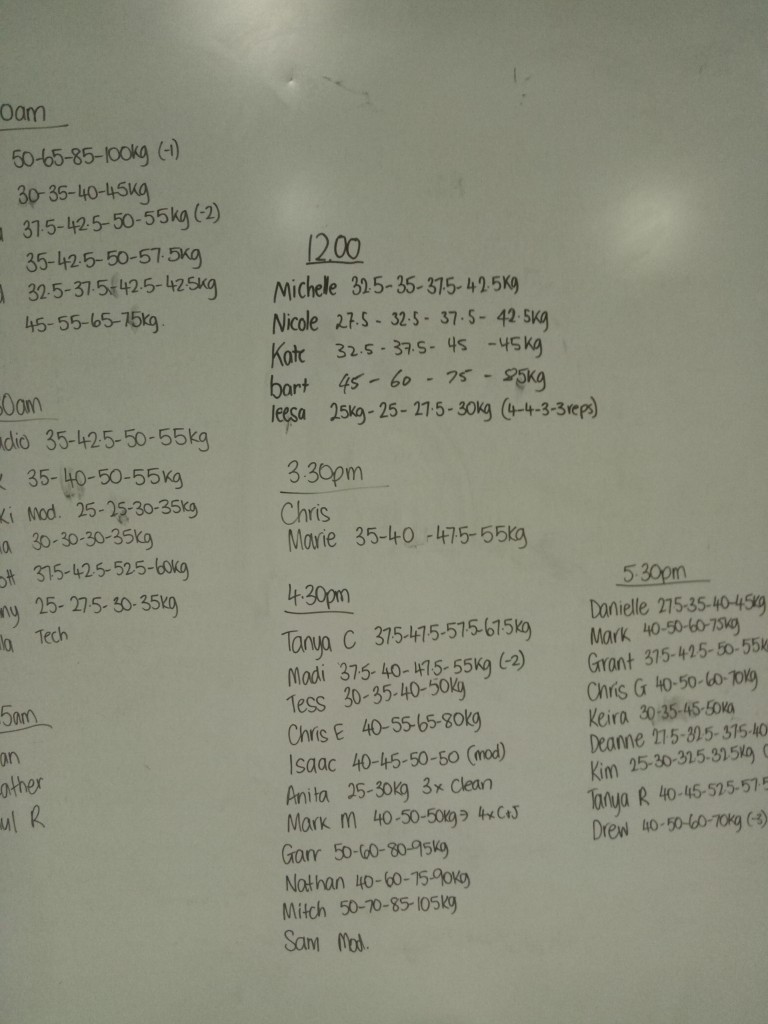 0am
50-65-85-100kg (-1)
30-35-40-45kg
37.5-42.5-50-55kg (-2)
35-42.5-50-57.5kg
32.5-37.5-42.5-42.5kg
45-55-65-75kg
30am
adio 35-42.5-50-55kg
35-40-50-55kg
ki Mod. 25-25-30-35kg
a 30-30-30-35kg
ott 37.5-42.5-52.5-60kg
ny 25-27.5-30-35kg
la Tech
5am
an
ather
ul R
12.00
Michelle 32.5-35-37.5-42.5kg
Nicole 27.5 - 32.5 - 37.5 - 42.5kg
Kate 32.5 - 37.5 - 45 - 45kg
bart 45 - 60 - 75 - 85kg
leesa 25kg - 25 - 27.5 - 30kg (4-4-3-3reps)
3.30pm
Chris
Marie 35-40 -47.5-55kg
4.30pm
Tanya C 37.5-47.5-57.5-67.5kg
Madi 37.5-40-47.5-55kg (-2)
Tess 30-35-40-50kg
Chris E 40-55-65-80kg
Isaac 40-45-50-50 (mod)
Anita 25-30kg 3x Clean
Mark M 40-50-50kg → 4x C+J
Garr 50-60-80-95kg
Nathan 40-60-75-90kg
Mitch 50-70-85-105kg
Sam Mod.
5.30pm
Danielle 27.5-35-40-45kg
Mark 40-50-60-75kg
Grant 37.5-42.5-50-55k
Chris G 40-50-60-70kg
Keira 30-35-45-50kg
Deanne 27.5-32.5-37.5-40
Kim 25-30-32.5-32.5kg (
Tanya R 40-45-52.5-57.5
Drew 40-50-60-70kg (-3)